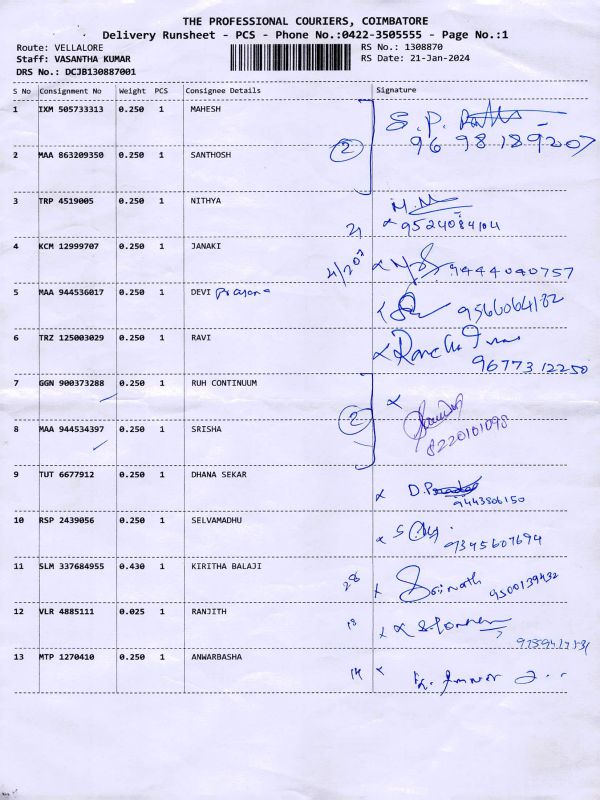 THE PROFESSIONAL COURIERS, COIMBATORE
Delivery Runsheet - PCS - Phone No.:0422-3505555 - Page No.:1
Route: VELLALORE
Staff: VASANTHA KUMAR
DRS No.: DCJB130887001
RS No.: 1308870
RS Date: 21-Jan-2024
S No Consignment No Weight PCS Consignee Details Signature
1 IXM 505733313 0.250 1 MAHESH S.P.
96 98 189207
2 MAA 863209350 0.250 1 SANTHOSH 2
3 TRP 4519005 0.250 1 NITHYA M.M
21 x 9524084104
4 KCM 12999707 0.250 1 JANAKI 4/203 x 9444040757
5 MAA 944536017 0.250 1 DEVI 9566064182
6 TRZ 125003029 0.250 1 RAVI
96773 12250
7 GGN 900373288 0.250 1 RUH CONTINUUM x
2
8 MAA 944534397 0.250 1 SRISHA 8220101098
9 TUT 6677912 0.250 1 DHANA SEKAR x D.
9443806150
10 RSP 2439056 0.250 1 SELVAMADHU x S
9345607694
11 SLM 337684955 0.430 1 KIRITHA BALAJI 28 x Srinath 9500139432
12 VLR 4885111 0.025 1 RANJITH 18 x
13 MTP 1270410 0.250 1 ANWARBASHA 14 x